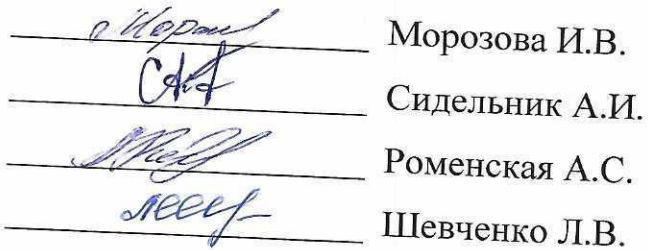 Морозова И.В.
Сидельник А.И.
Роменская А.С.
Шевченко Л.В.